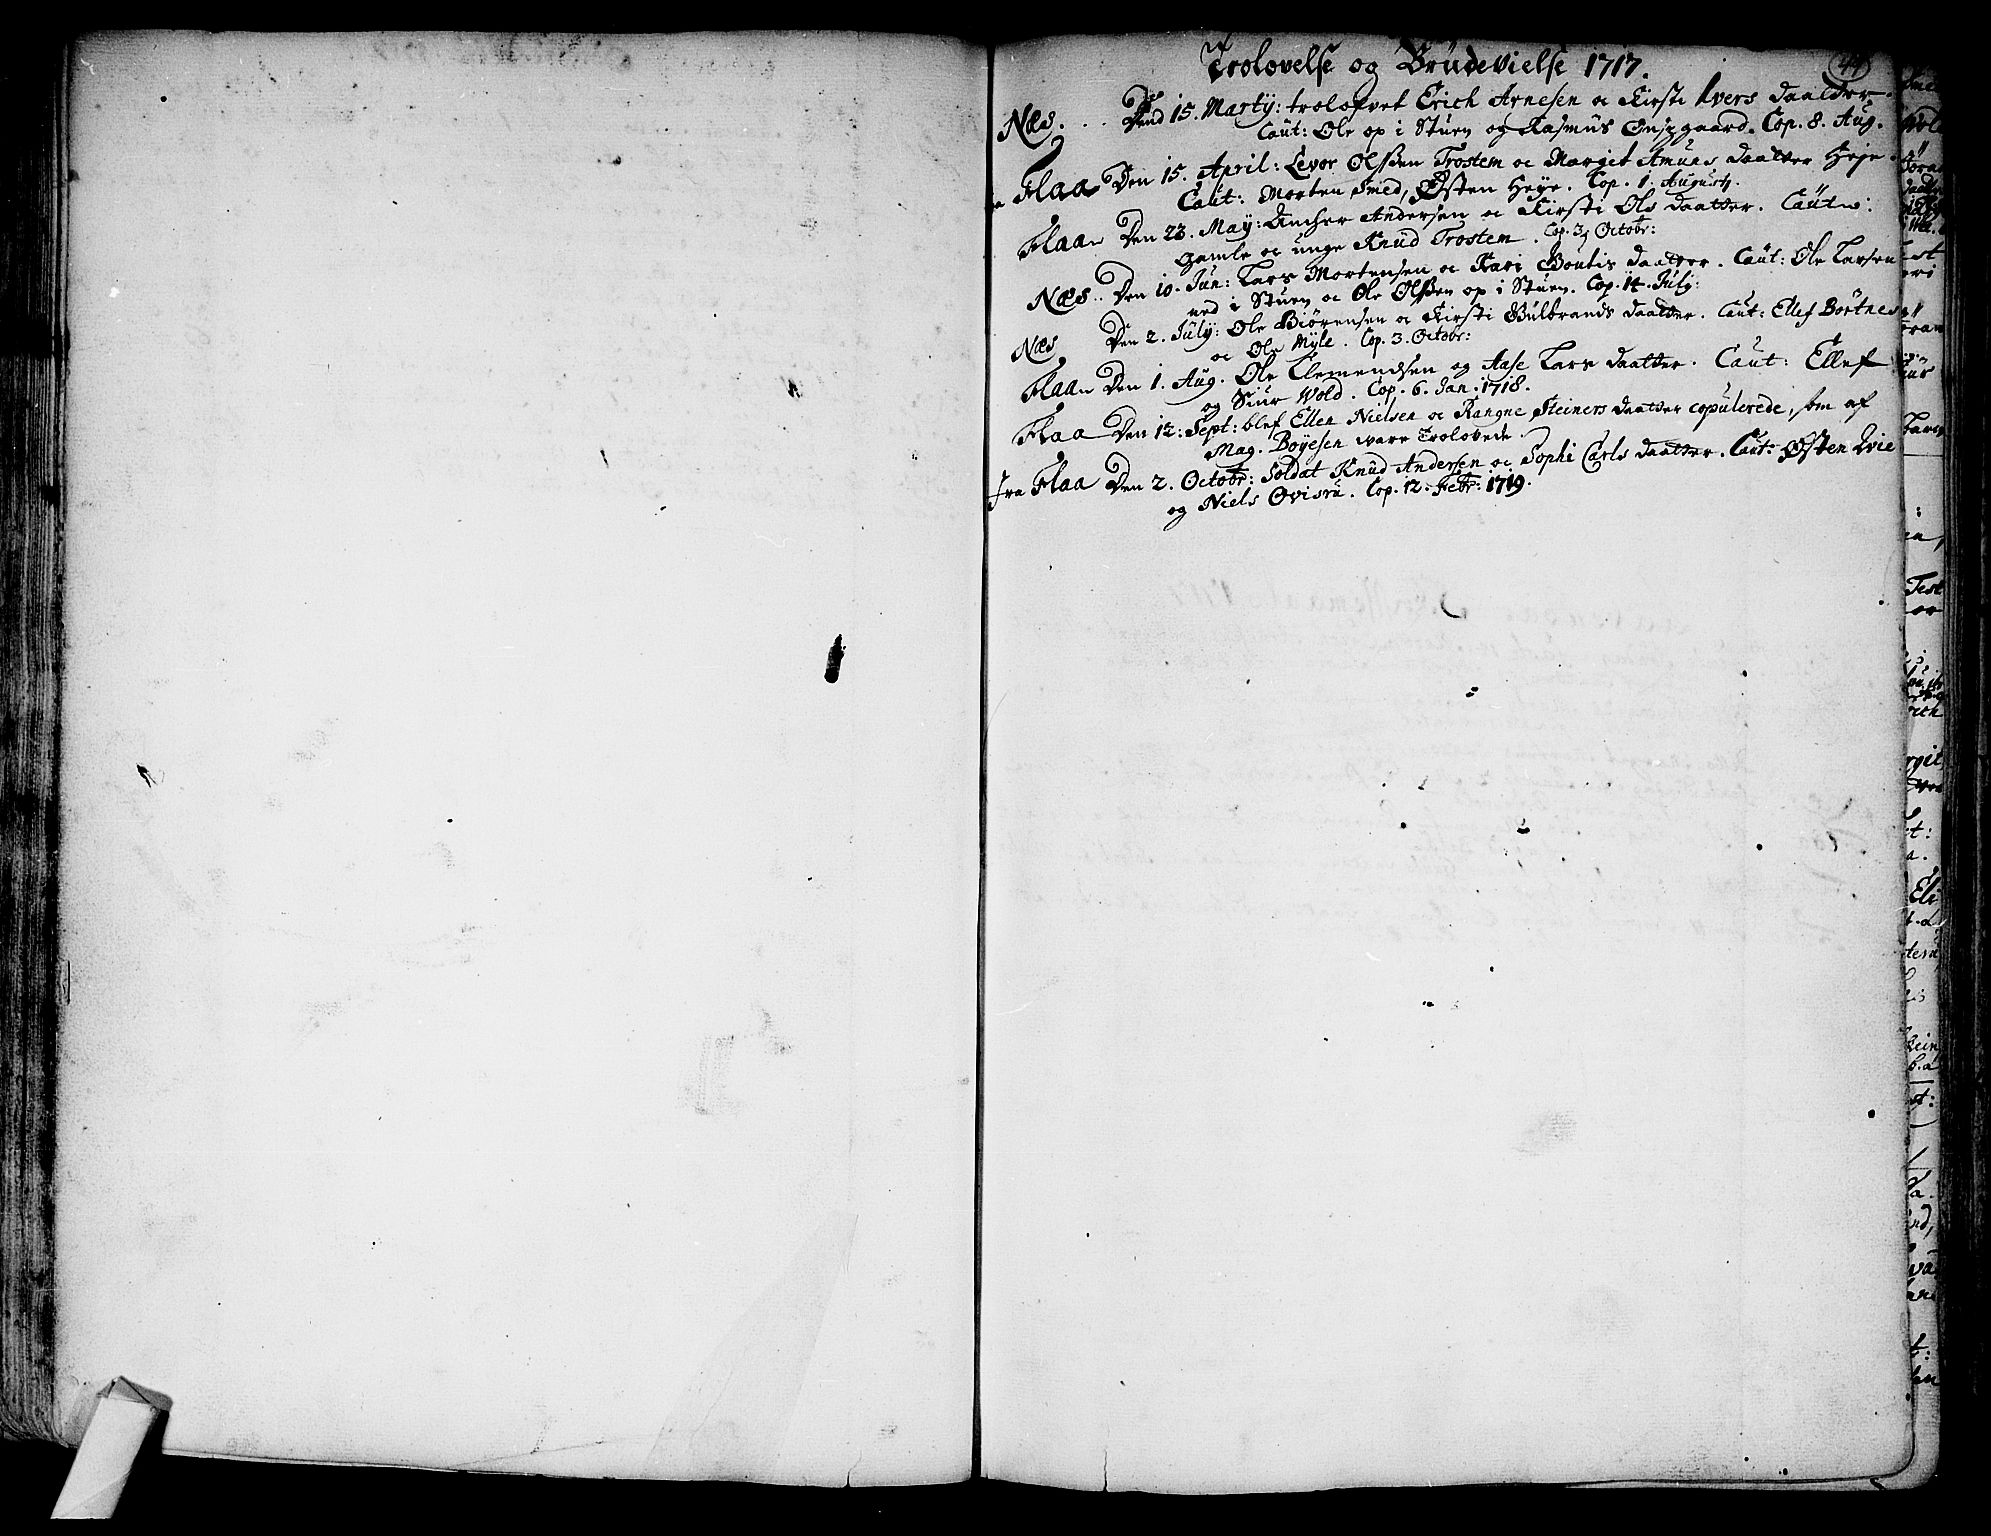 Trolovelse og Brüdevielse 1717.
44
Næs. Dend 15. Martij: troloffvet Erich Arnesen oc Kirsti Ivers daatter.
Caut: Ole op i Stuen og Rasmus Ønsgaard. Cop. 8. Aug.
Flaa Den 15. April: Levor Olssen Trostem oc Margit Amuns daatter Heje.
Caut: Morten Smed, Østen Heye. Cop. 1. Augusti.
Flaa Den 23. May: Ancher Andersen oc Kirsti Ols daatter. Caut:
gamle oc unge Knüd Trostem. Cop. 3 Octobr:
Næs Den 10. Jun: Lars Mortensen oc Kari Boutis daatter. Caut: Ole Larsen
ned i Stuen oc Ole Olssen op i Stuen. Cop. 14. July:
Næs Den 2. Jüly: Ole Biörensen oc Kirsti Gulbrands daatter. Caut: Ellef Börtnes
oc Ole Myle. Cop. 3. Octobr:
Flaa Den 1. Aug. Ole Clemendsen og Aase Lars daatter. Caut: Ellef
og Siur Wold. Cop. 6. Jan. 1718.
Flaa Den 12: Sept: blef Ellen Nielsen oc Rangne Steiners daatter copulerede, som af
Mag. Boyesen vare Trolovede.
fra Flaa Den 2. Octobr: Soldat Knüd Andersen oc Sophi Carls daatter. Caut: Østen Qvie
og Niels Qvisrü. Cop. 12: Febr: 1719.